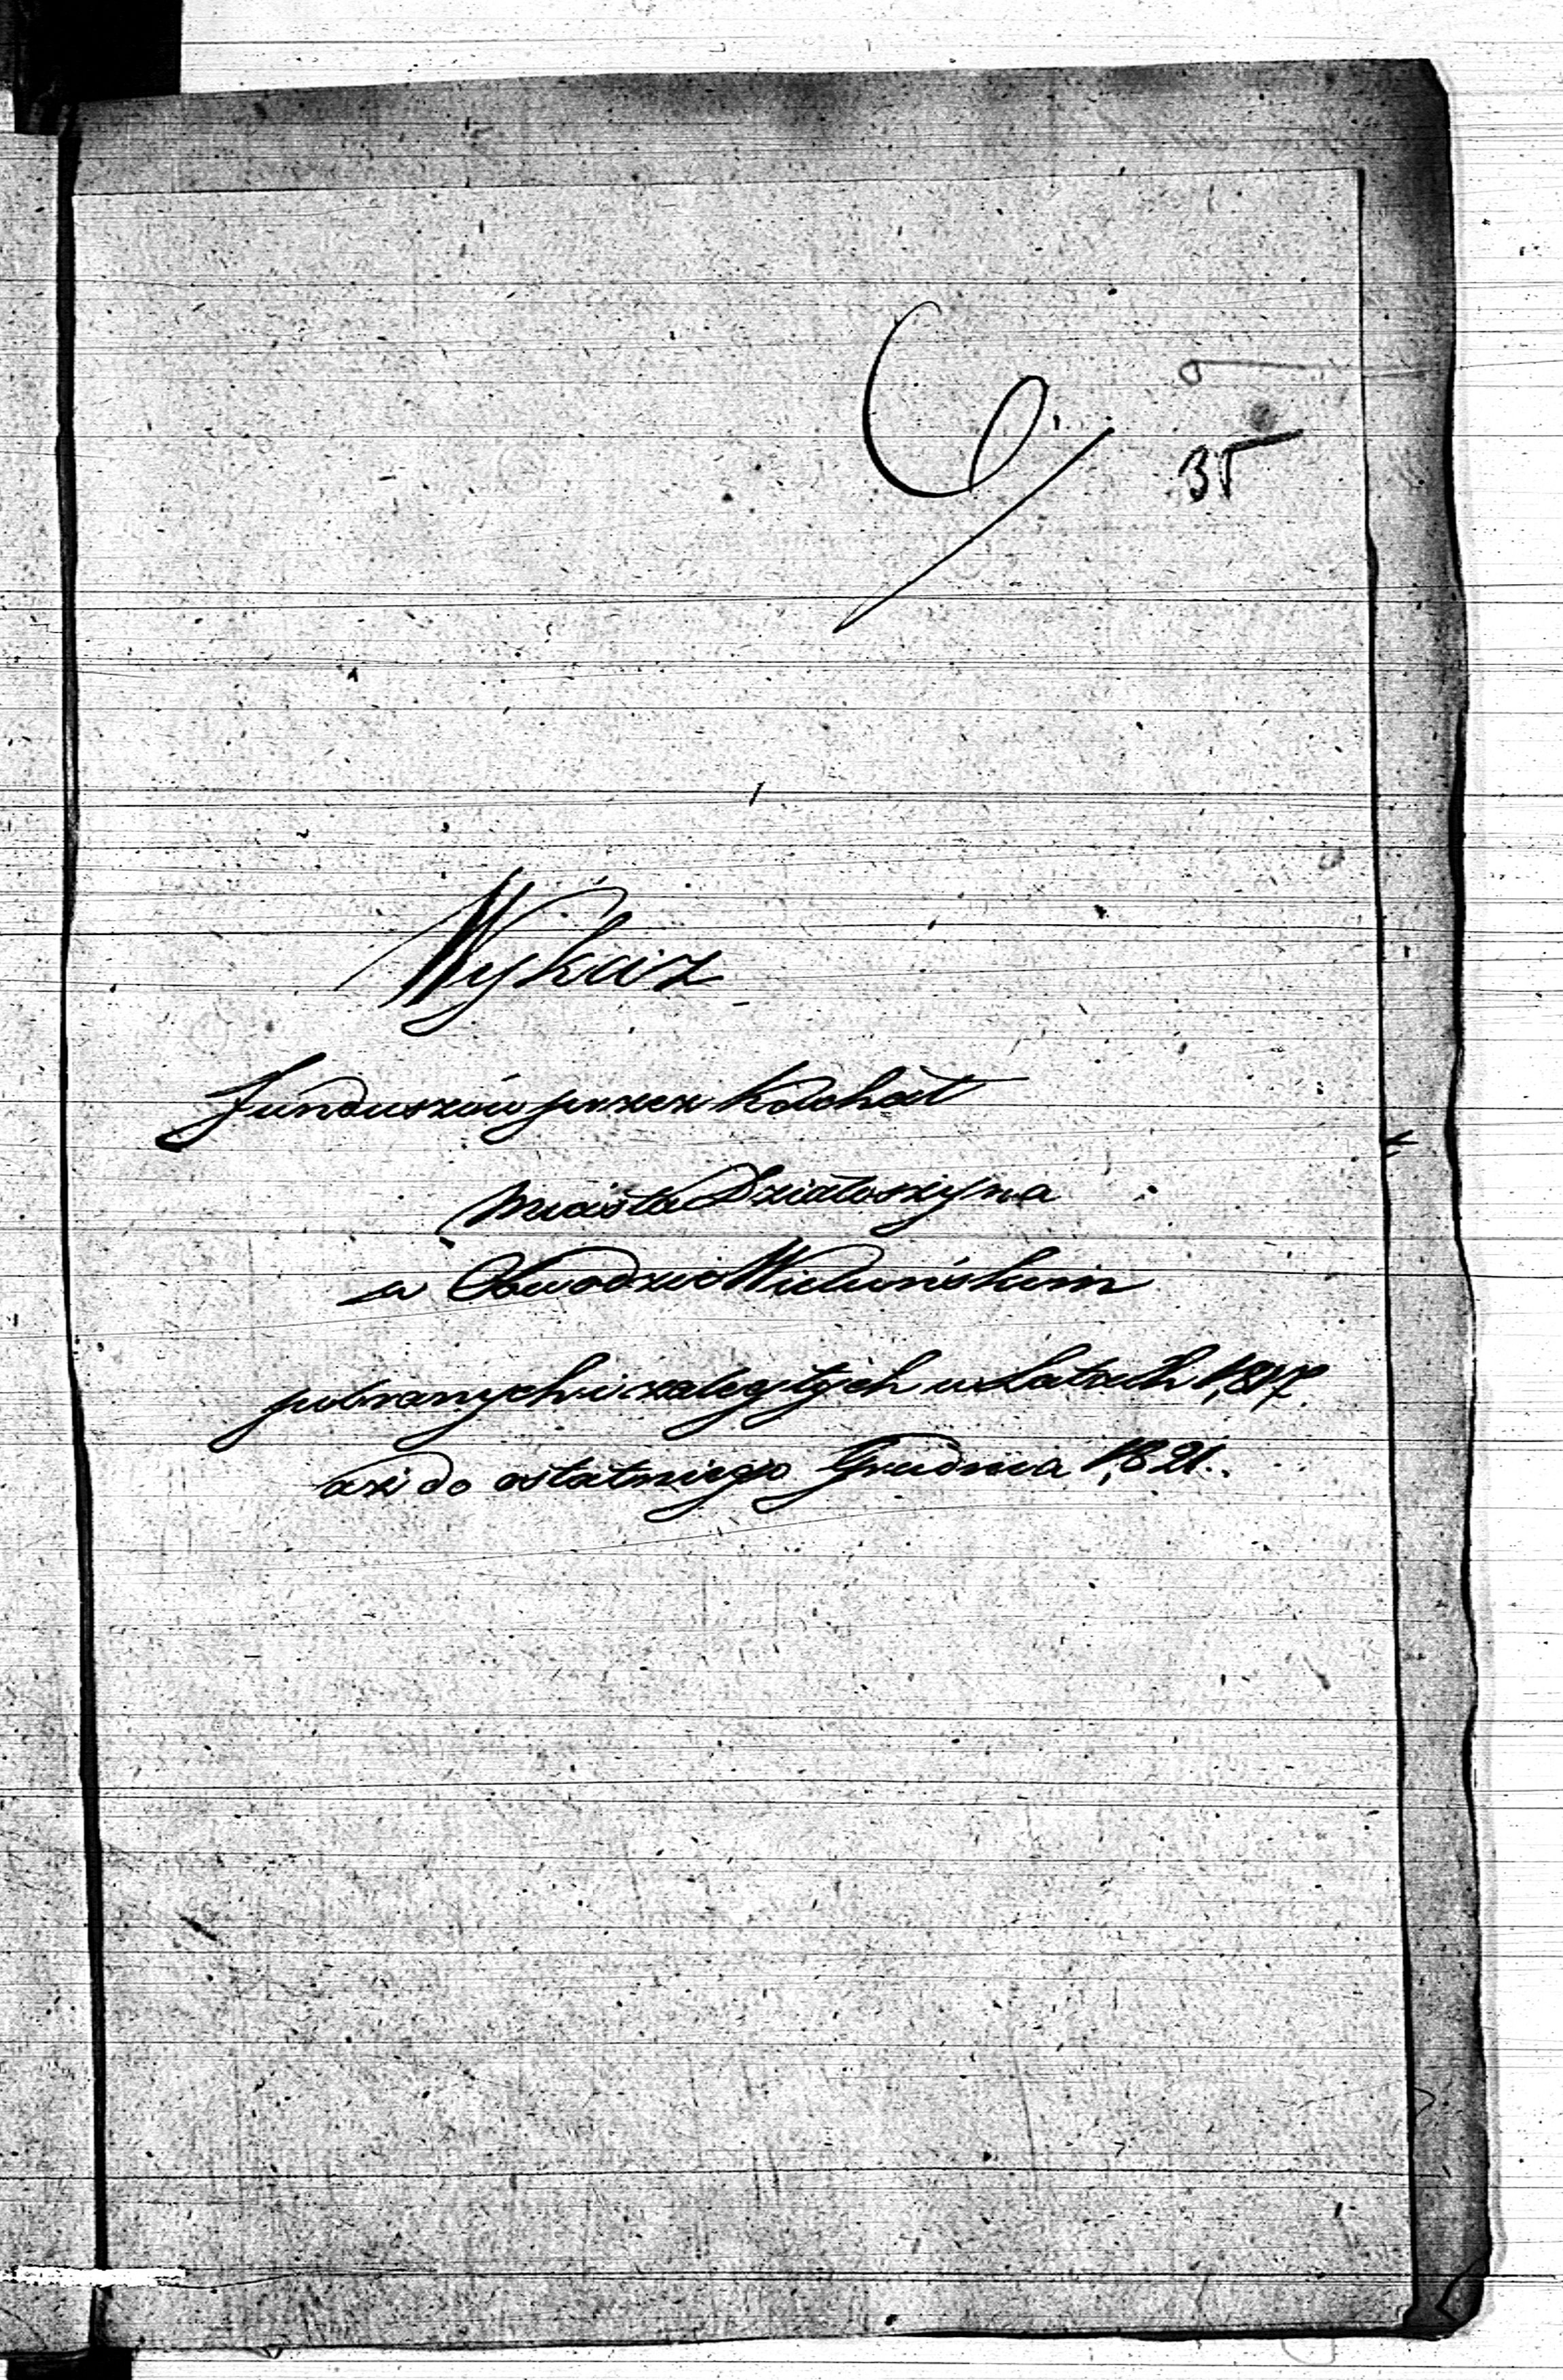 C.
35
Wykaz
Funduszów przez Kahał
Miasta Działoszyna
w Obwodzie Wieluńskim
pobranych i zaległych w Latach 1817
aż do ostatniego Grudnia 1821.